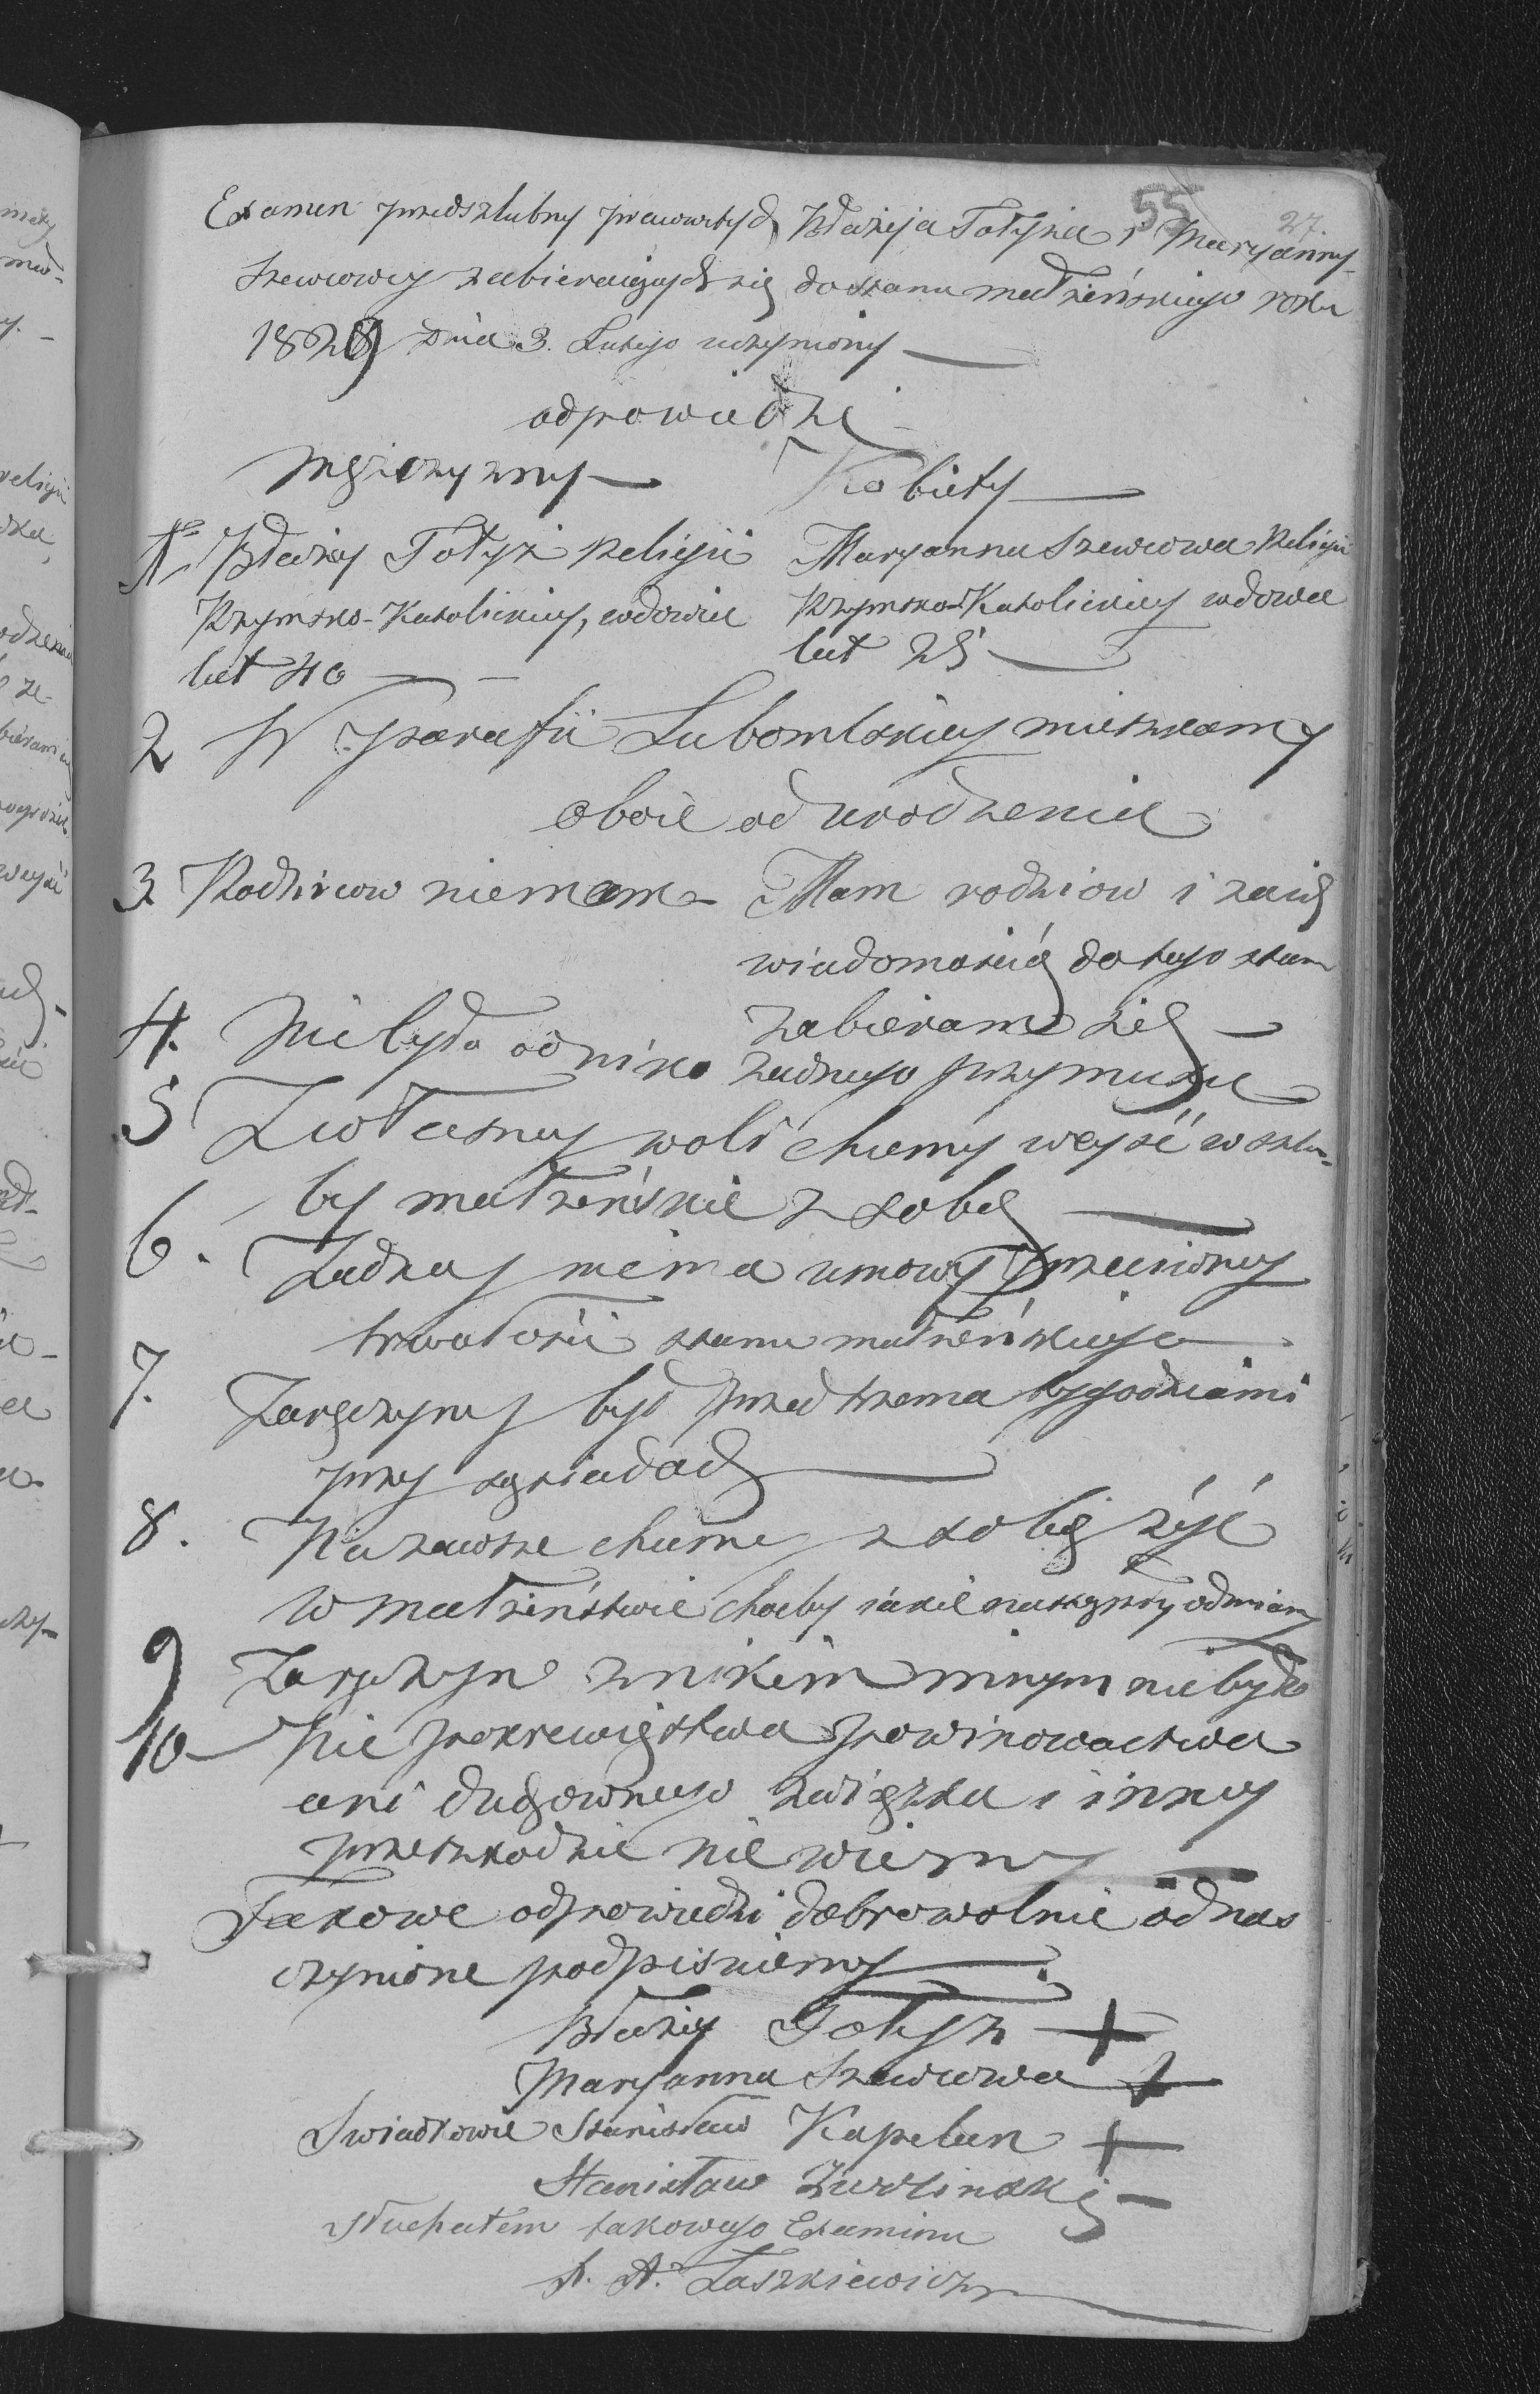 55
27.
Examen przedszlubny pracowitych Błażeja Totysza i Maryanny
Szewcowey zabieraiących się do stanu małżeńskiego roku
1829 Dnia 3. Lutego uczyniony
odpowiedzi
Męszczyzny Kobiety
1. Błażey Totysz Religii Maryanna Szewcowa Religii
Rzymsko-Katolickiey, wdowiec Rzymsko-Katolickiey wdowa
lat 40 lat 25
2 W parafii Lubomlskiey mieszkamy
oboie od urodzenia
3 Rodzicow niemam Mam rodziców i za ich
wiadomością do tego stanu
zabieram się
4. Niebyło od niko żadnego przymusu
5 Z własney woli chcemy weyść w szlu-
by małżeńskie z sobą
6. Żadney niema umowy przeciwney
trwałości stanu małżeńskiego
7. Zaręczyny były przed trzema tygodniami
przy sąsiadach
8. Na zawsze chcemy z sobą żyć
w małżeństwie choćby iakie nastąpiły odmiany
9 Zaręczyn z nikim innym niebyło
10 Nie pokrewieństwa powinowactwa
ani duchownego związku i inney
przeszkodzie nie wiemy
Takowe odpowiedzi dobrowolnie od nas
czynione podpisuiemy
Błażey Totysz +
Maryanna Szewcowa +
Swiadkowie Stanisław Kapelan +
Stanisław
Słuchałem takowego Examinu
X. A. Laszkiewicz